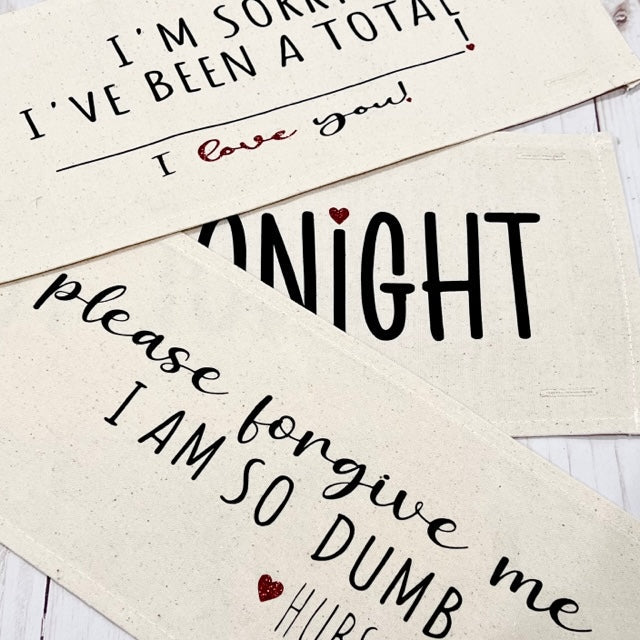 I'M SORRY
I'VE BEEN A TOTAL
!
I love you!
NIGHT
please forgive me
I AM SO DUMB